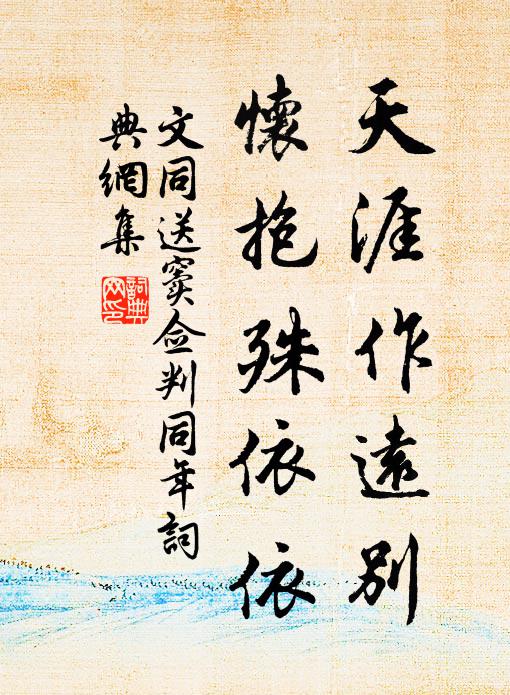 天涯作遠別
懷抱殊依依
文同送窦佥判同年詞
典網集
詞典
网印